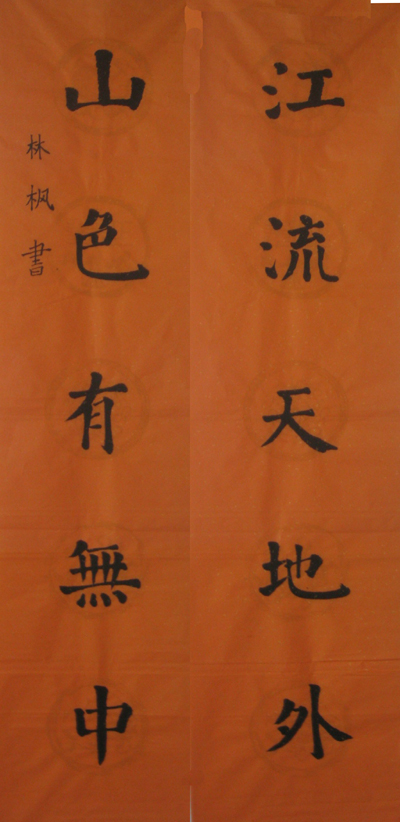 江流天地外
山色有無中
林枫書